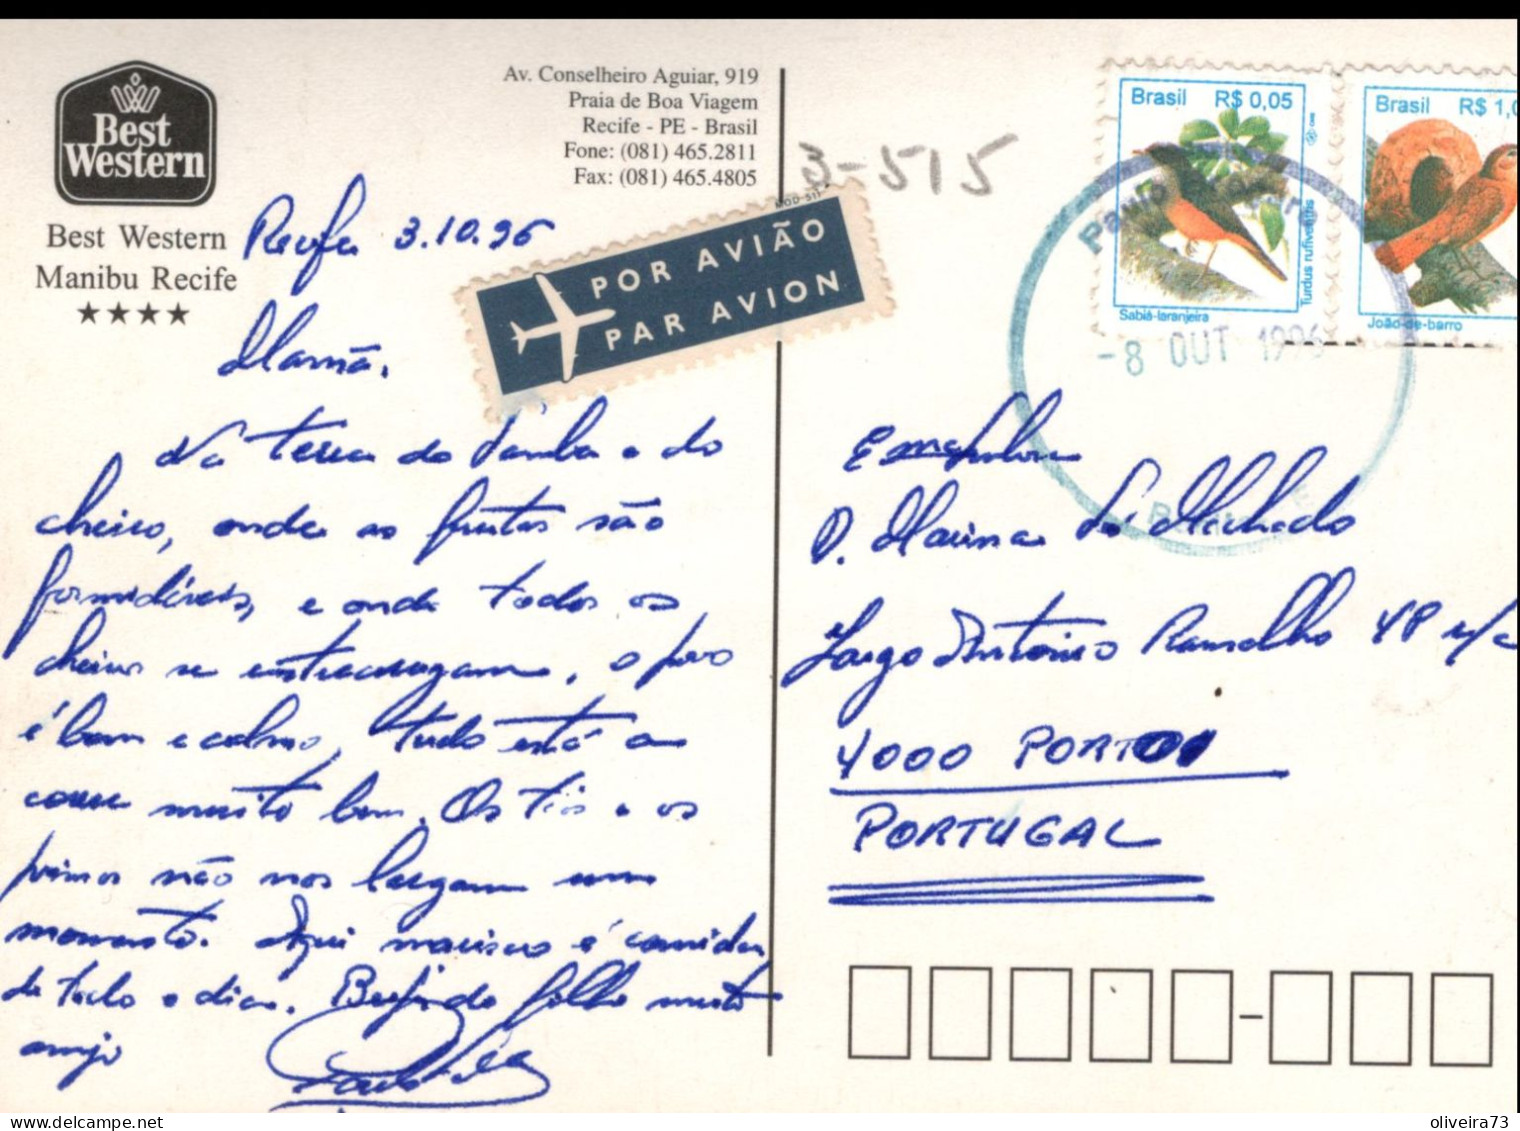 Best
Western
Best Western
Manibu Recife
★★★★
Av. Conselheiro Aguiar, 919
Praia de Boa Viagem
Recife - PE - Brasil
Fone: (081) 465.2811
Fax: (081) 465.4805
3-515
POR AVIÃO
PAR AVION
Brasil R$ 0,05
Turdus rufiventris
Sabiá-laranjeira
Brasil R$ 1,0
João-de-barro
-8 OUT 1996
Recife 3.10.96
Mamã,
Na terra do samba e do
cheiro, onde as frutas são
formidáveis, e onde todos os
cheiros se entrecruzam, o povo
é bom e calmo, tudo está a
correr muito bem. Os tios e os
primos não nos largam um
momento. Aqui marisco é comida
de todo o dia. Beijo do filho muito
amigo
D. Marina Machado
Largo Antonio Ramalho 48 r/c
4000 PORTO
PORTUGAL
oliveira73